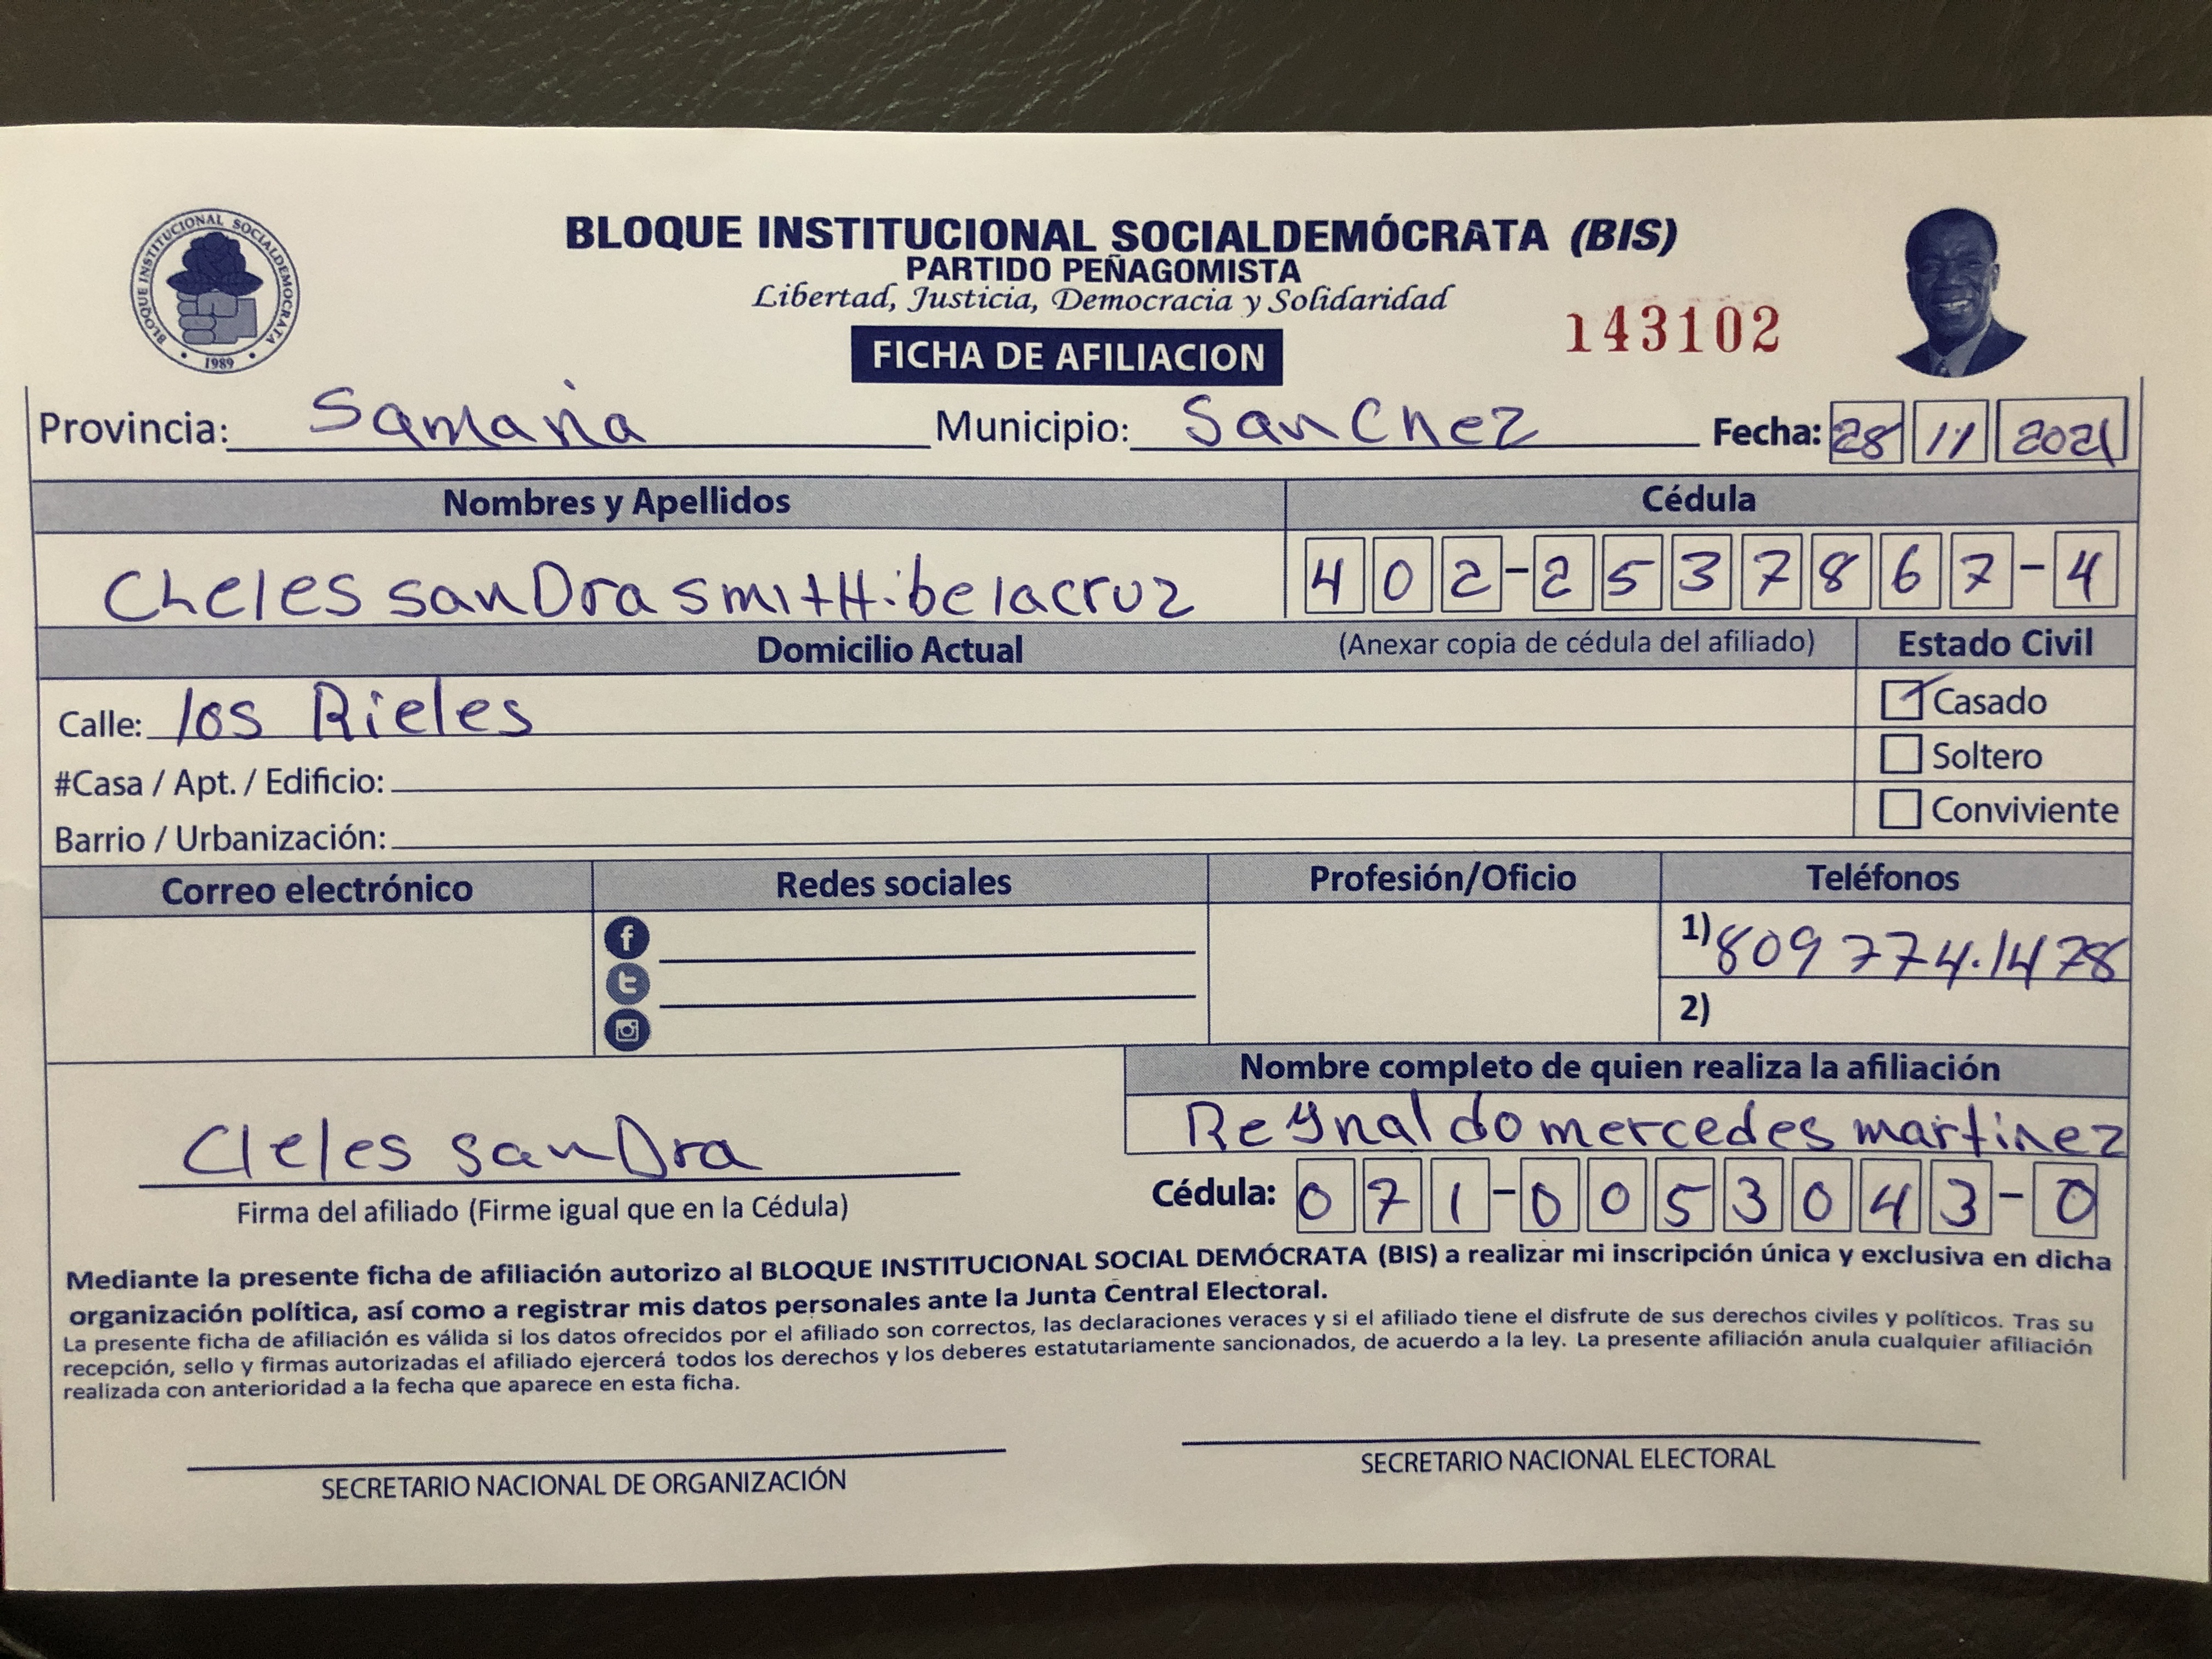 BLOQUE INSTITUCIONAL SOCIALDEMOCRATA
1989
BLOQUE INSTITUCIONAL SOCIALDEMÓCRATA (BIS)
PARTIDO PEÑAGOMISTA
Libertad, Justicia, Democracia y Solidaridad
143102
FICHA DE AFILIACION
Provincia: Samana Municipio: Sanchez Fecha: 28 11 2021
Nombres y Apellidos Cédula
Cheles sanDra smitH.belacruz 402-2537867-4
Domicilio Actual (Anexar copia de cédula del afiliado) Estado Civil
Calle: los Rieles Casado
#Casa / Apt. / Edificio: Soltero
Barrio / Urbanización: Conviviente
Correo electrónico Redes sociales Profesión/Oficio Teléfonos
1) 809 774.1478
2)
Nombre completo de quien realiza la afiliación
Reynaldo mercedes martinez
Cleles sanDra
Cédula: 071-0053043-0
Firma del afiliado (Firme igual que en la Cédula)
Mediante la presente ficha de afiliación autorizo al BLOQUE INSTITUCIONAL SOCIAL DEMÓCRATA (BIS) a realizar mi inscripción única y exclusiva en dicha
organización política, así como a registrar mis datos personales ante la Junta Central Electoral.
La presente ficha de afiliación es válida si los datos ofrecidos por el afiliado son correctos, las declaraciones veraces y si el afiliado tiene el disfrute de sus derechos civiles y políticos. Tras su
recepción, sello y firmas autorizadas el afiliado ejercerá todos los derechos y los deberes estatutariamente sancionados, de acuerdo a la ley. La presente afiliación anula cualquier afiliación
realizada con anterioridad a la fecha que aparece en esta ficha.
SECRETARIO NACIONAL DE ORGANIZACIÓN SECRETARIO NACIONAL ELECTORAL